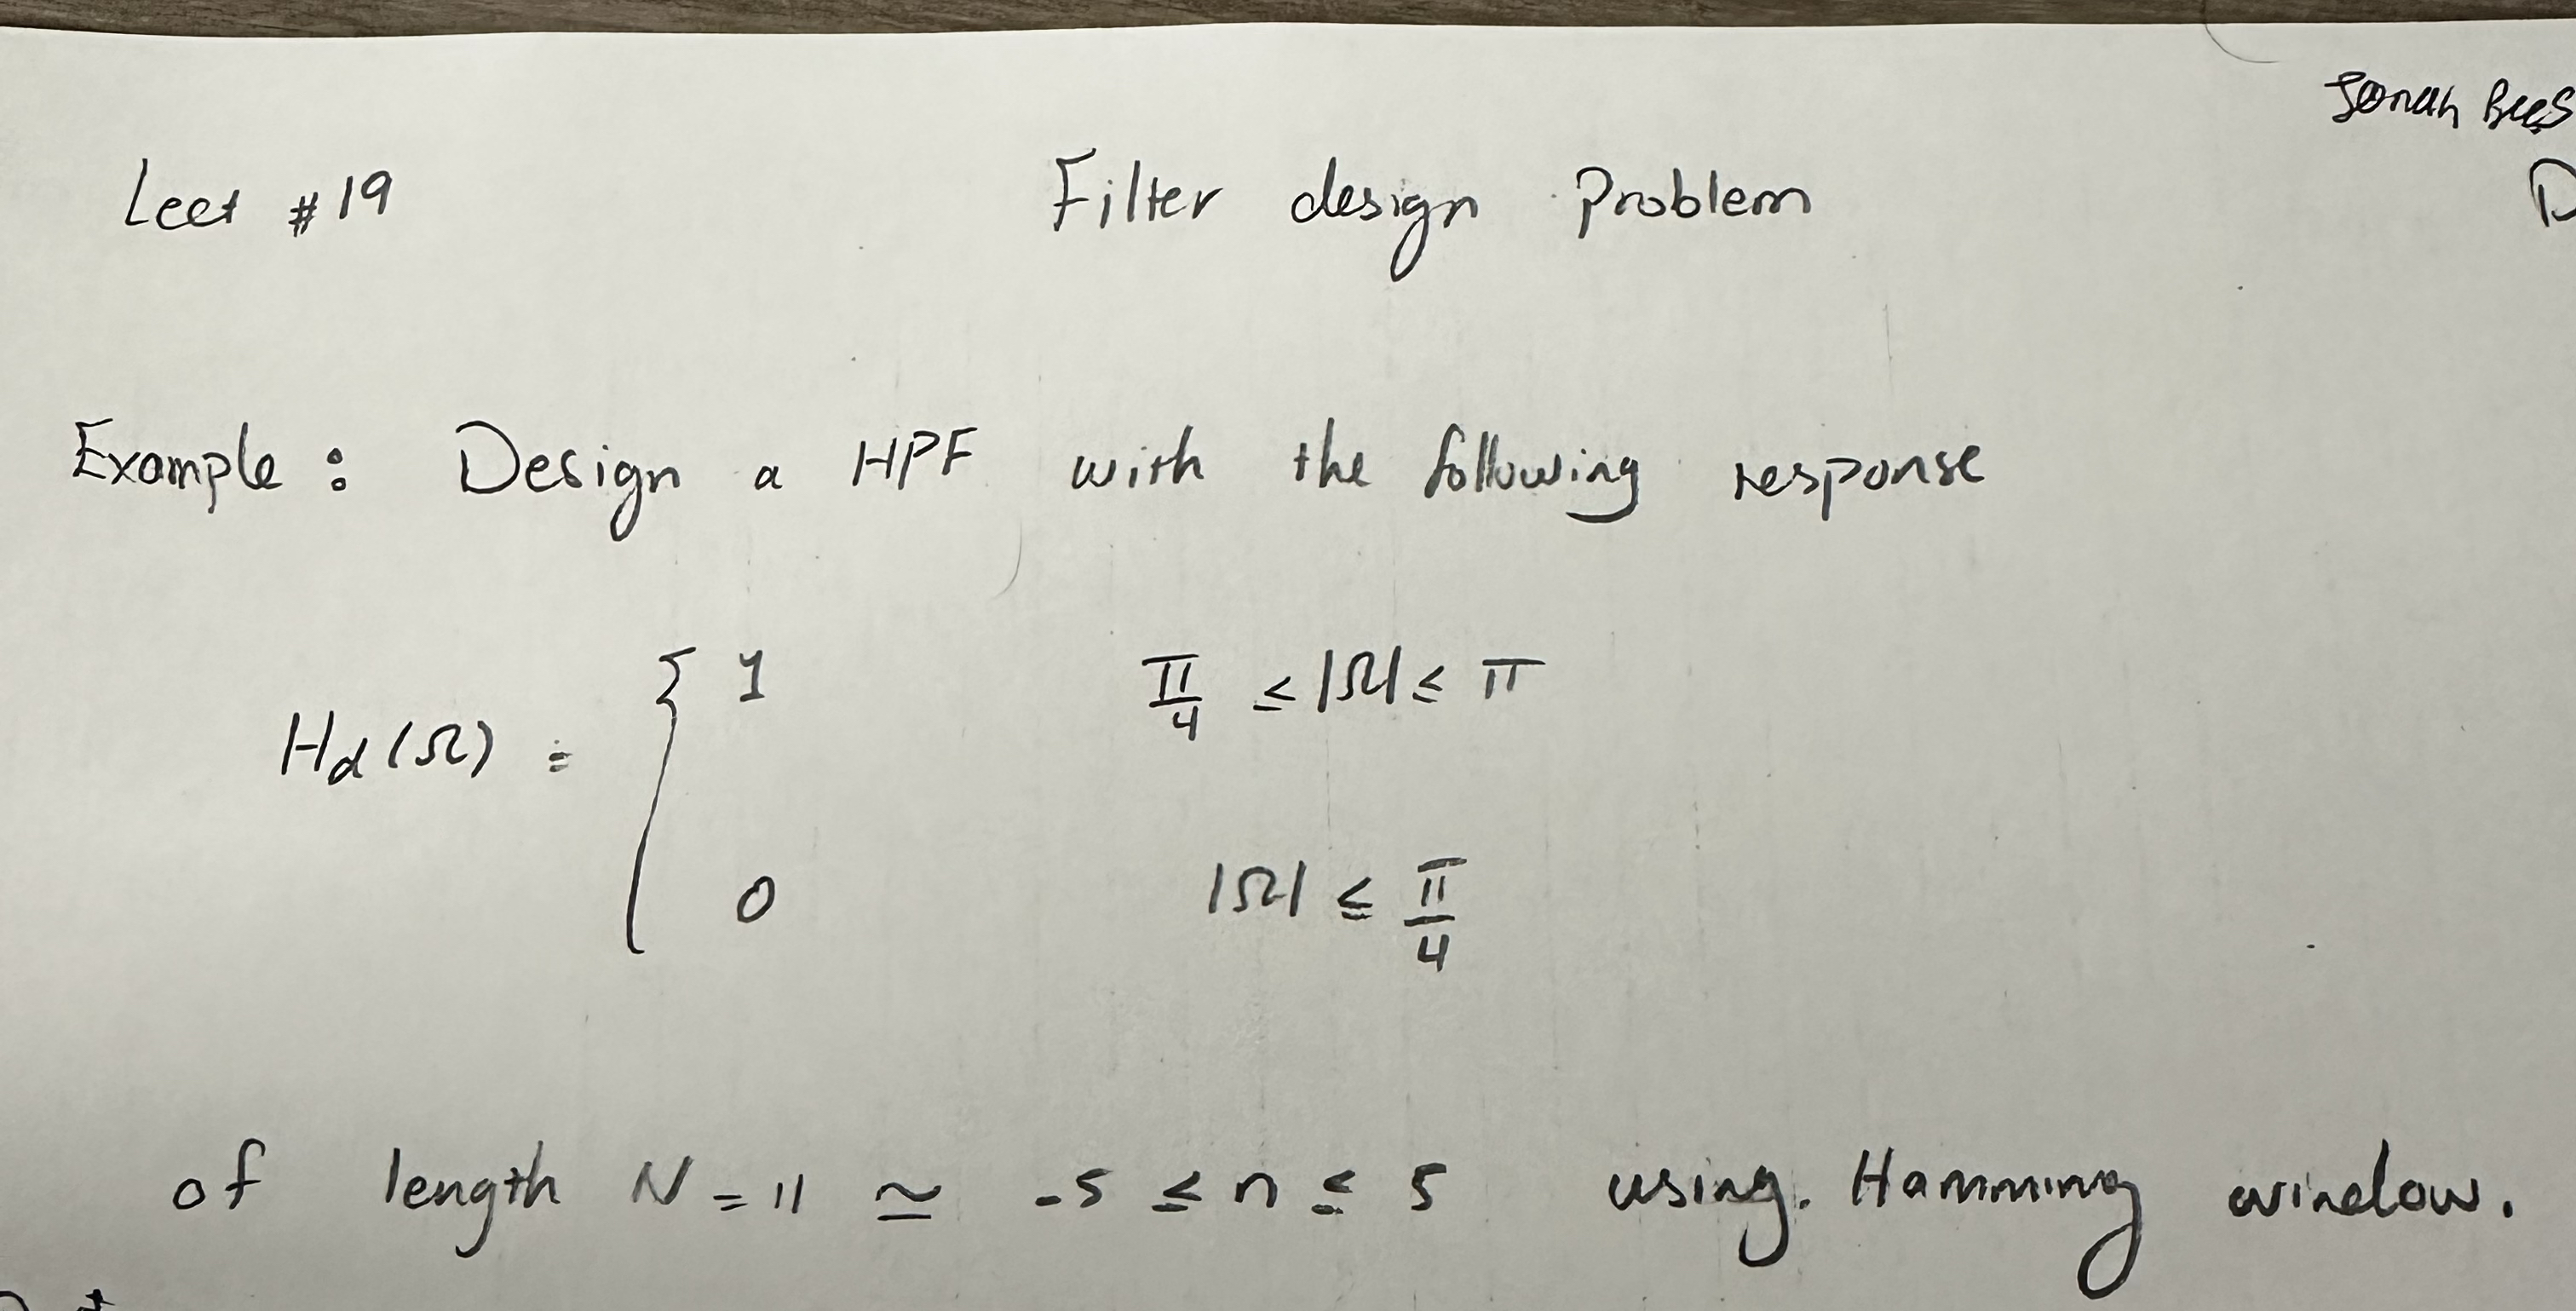 Jonah
Lect #19 Filter design Problem D
Example : Design a HPF with the following response
Hd(Ω) = { 1 π/4 ≤ |Ω| ≤ π
0 |Ω| ≤ π/4
of length N = 11 ≃ -5 ≤ n ≤ 5 using. Hamming window.